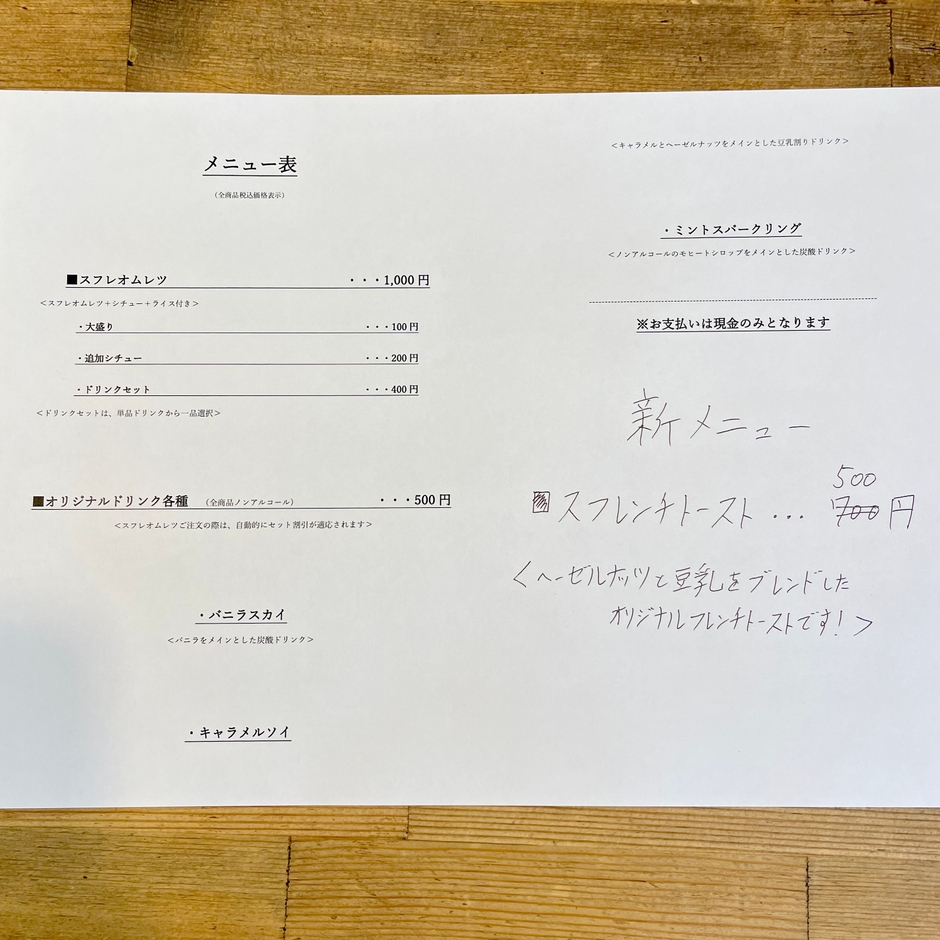 メニュー表
（全商品税込価格表示）
■スフレオムレツ ・・・1,000円
＜スフレオムレツ＋シチュー＋ライス付き＞
・大盛り ・・・100円
・追加シチュー ・・・200円
・ドリンクセット ・・・400円
＜ドリンクセットは、単品ドリンクから一品選択＞
■オリジナルドリンク各種 （全商品ノンアルコール） ・・・500円
＜スフレオムレツご注文の際は、自動的にセット割引が適応されます＞
・バニラスカイ
＜バニラをメインとした炭酸ドリンク＞
・キャラメルソイ
＜キャラメルとヘーゼルナッツをメインとした豆乳割りドリンク＞
・ミントスパークリング
＜ノンアルコールのモヒートシロップをメインとした炭酸ドリンク＞
※お支払いは現金のみとなります
新メニュー
500
■スフレンチトースト ... 700円
＜ヘーゼルナッツと豆乳をブレンドした
オリジナルフレンチトーストです！＞